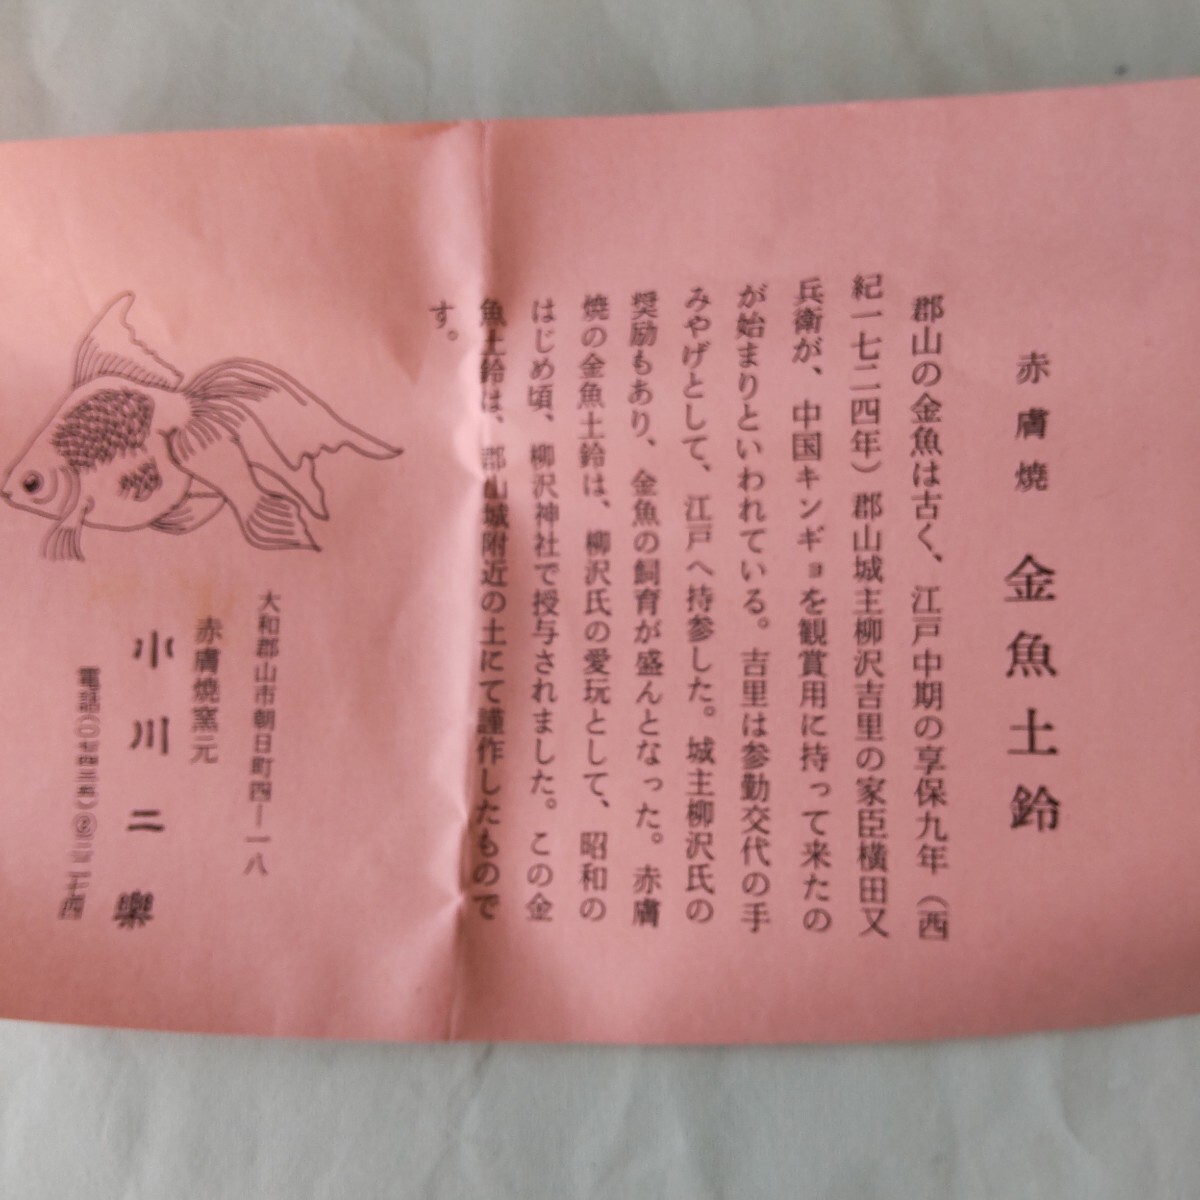 赤膚焼 金魚土鈴
郡山の金魚は古く、江戸中期の享保九年（西
紀一七二四年）郡山城主柳沢吉里の家臣横田又
兵衛が、中国キンギョを観賞用に持って来たの
が始まりといわれている。吉里は参勤交代の手
みやげとして、江戸へ持参した。城主柳沢氏の
奨励もあり、金魚の飼育が盛んとなった。赤膚
焼の金魚土鈴は、柳沢氏の愛玩として、昭和の
はじめ頃、柳沢神社で授与されました。この金
魚土鈴は、郡山城附近の土にて謹作したもので
す。
大和郡山市朝日町四―一八
赤膚焼窯元
小川二樂
電話（〇七四三五）